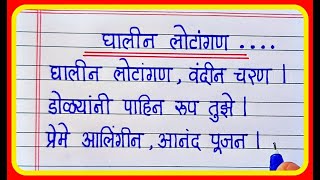 घालीन लोटांगण ....
घालीन लोटांगण , वंदीन चरण ।
डोळ्यांनी पाहिन रूप तुझे ।
प्रेमे आलिंगीन , आनंद पूजन ।